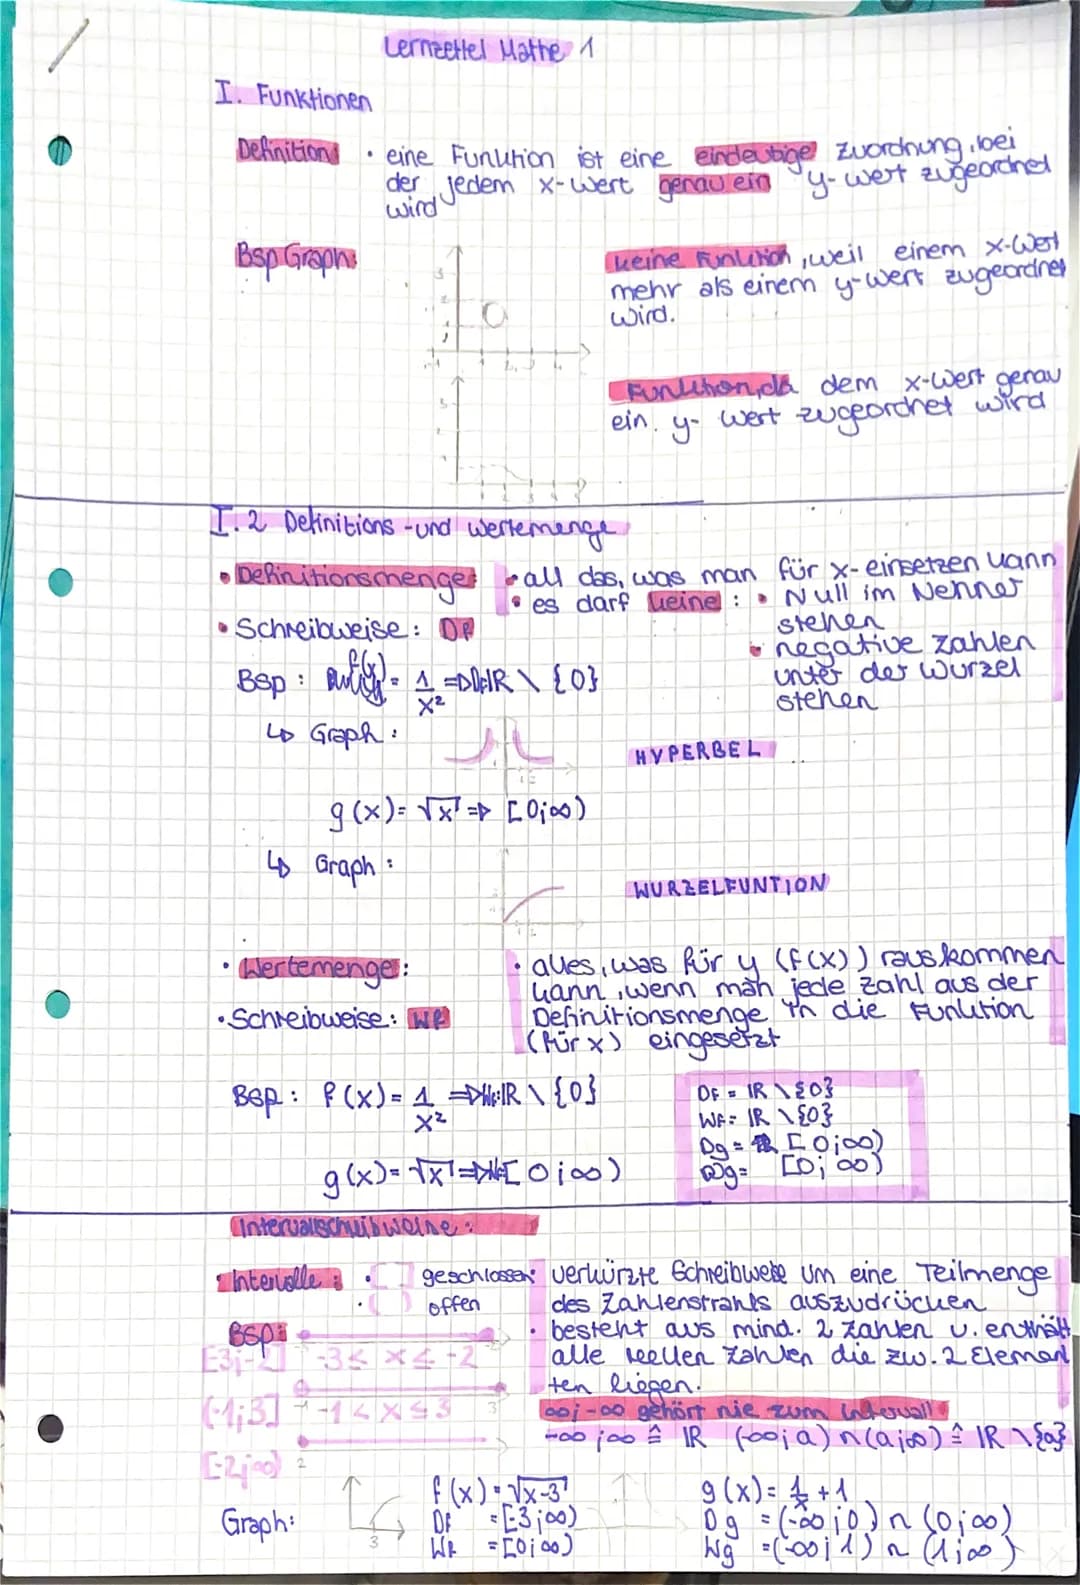 Lernzettel Mathe 1
I. Funktionen
Definition: • eine Funktion ist eine eindeutige Zuordnung, bei
der jedem x-Wert genau ein y-Wert zugeordnet
wird
Bsp Graph:
keine Funktion, weil einem x-Wert
mehr als einem y-Wert zugeordnet
wird.
Funktion, da dem x-Wert genau
ein y-Wert zugeordnet wird
I.2 Definitions-und Wertemenge
• Definitionsmenge: • all das, was man für x-einsetzen kann
• es darf keine: • Null im Nenner
stehen
• Schreibweise: Df
• negative Zahlen
unter der Wurzel
stehen
Bsp: f(x) = 1/x² => Df=ℝ \ {0}
↳ Graph:
HYPERBEL
g(x)= √x => [0;∞)
↳ Graph:
WURZELFUNTION
• Wertemenge: • alles, was für y (f(x)) rauskommen
kann, wenn man jede Zahl aus der
• Schreibweise: Wf Definitionsmenge in die Funktion
(für x) eingesetzt
Bsp: f(x) = 1/x² => Wf=ℝ \ {0}
g(x)= √x => W=[0;∞)
Df = ℝ \ {0}
Wf = ℝ \ {0}
Dg = [0;∞)
Wg = [0;∞)
Intervallschreibweise:
• Intervalle: • [ ] geschlossen
• ( ) offen
• verkürzte Schreibweise um eine Teilmenge
des Zahlenstrahls auszudrücken
• besteht aus mind. 2 Zahlen u. enthält
alle reellen Zahlen die zw. 2 Elemen
ten liegen.
Bsp:
[-3;-2] -3 ≤ x ≤ -2
(-1;3] -1 < x ≤ 3
[-2;∞)
∞;-∞ gehört nie zum Intervall
-∞;∞ ≙ ℝ (-∞;a) ∩ (a;∞) ≙ ℝ \ {a}
Graph:
3
f(x) = √x-3
Df = [-3;∞)
Wf = [0;∞)
g(x) = 1/x + 1
Dg = (-∞;0) ∩ (0;∞)
Wg = (-∞;1) ∩ (1;∞)